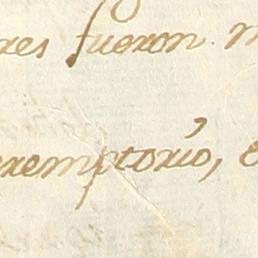 res fueron
exemptorio,